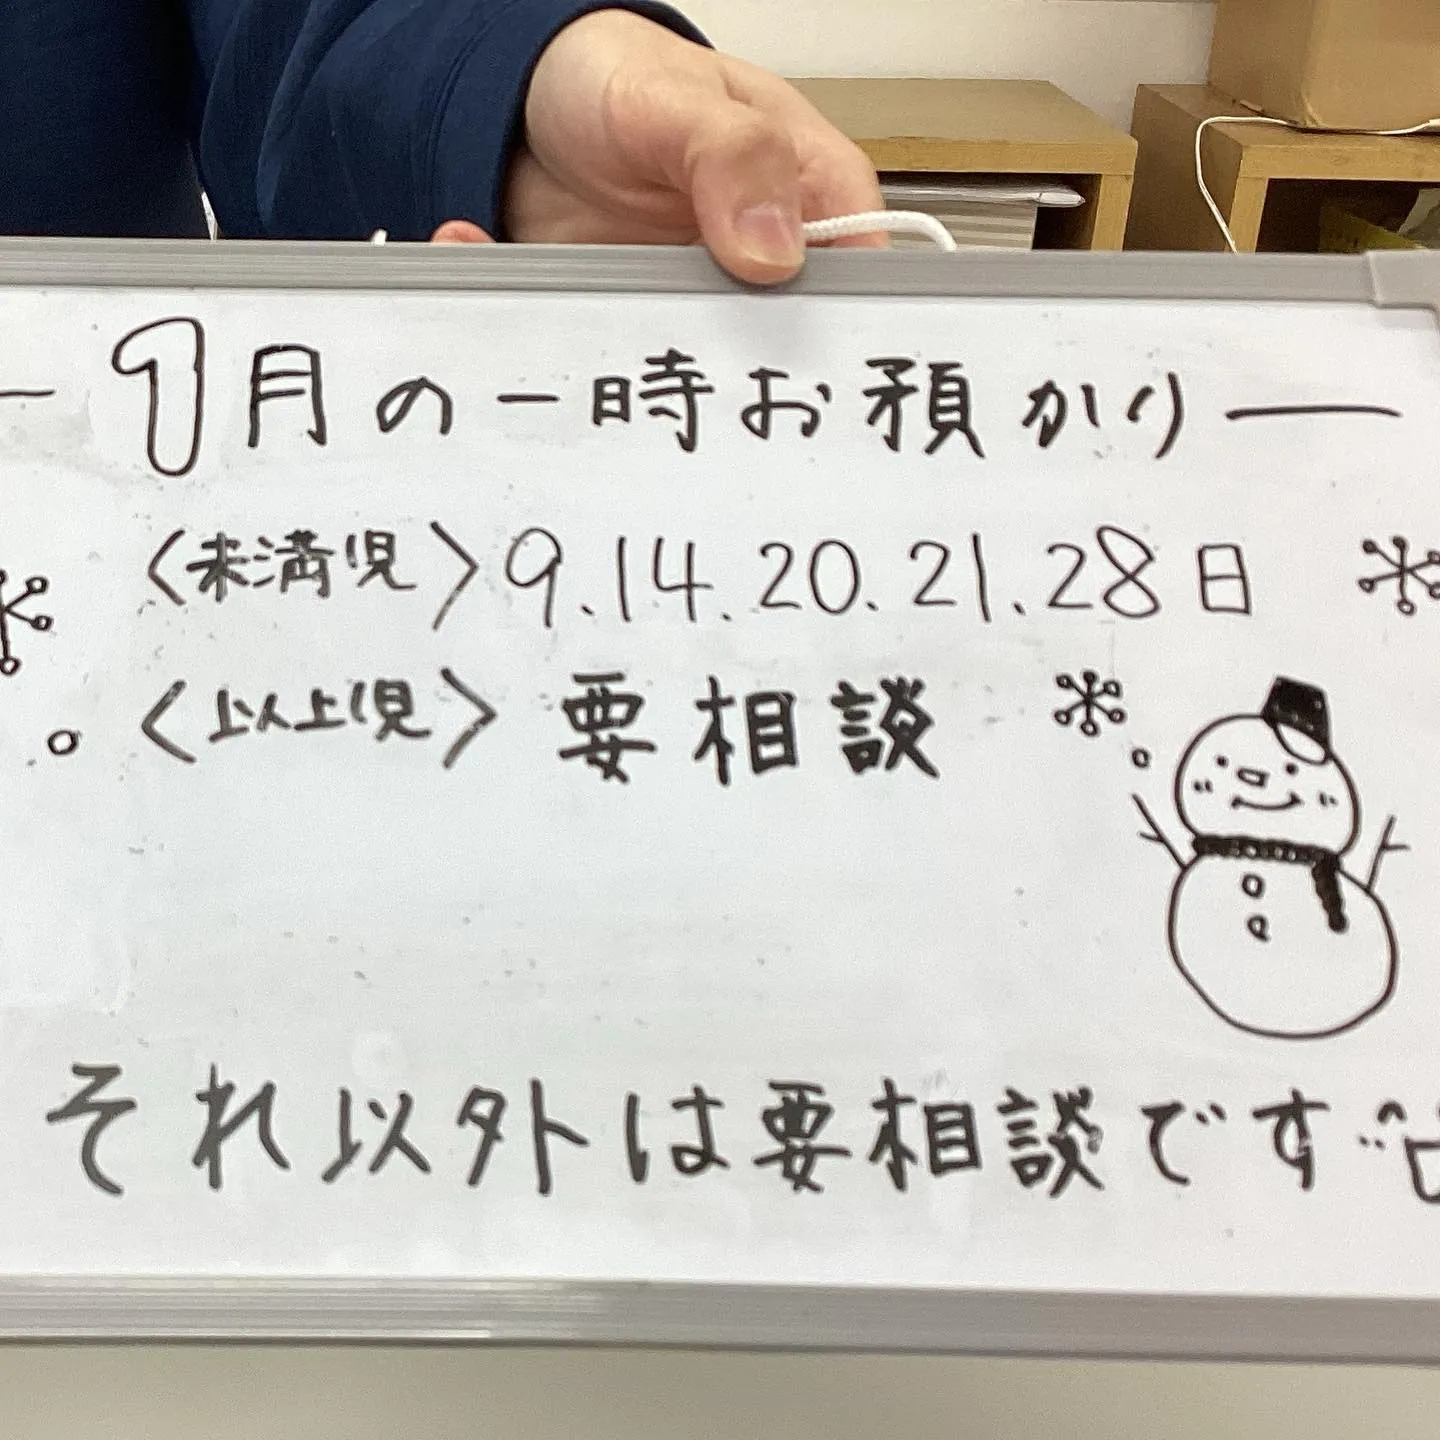 ー 1月の一時お預かり ー
〈未満児〉9.14.20.21.28日
〈以上児〉要相談
それ以外は要相談です